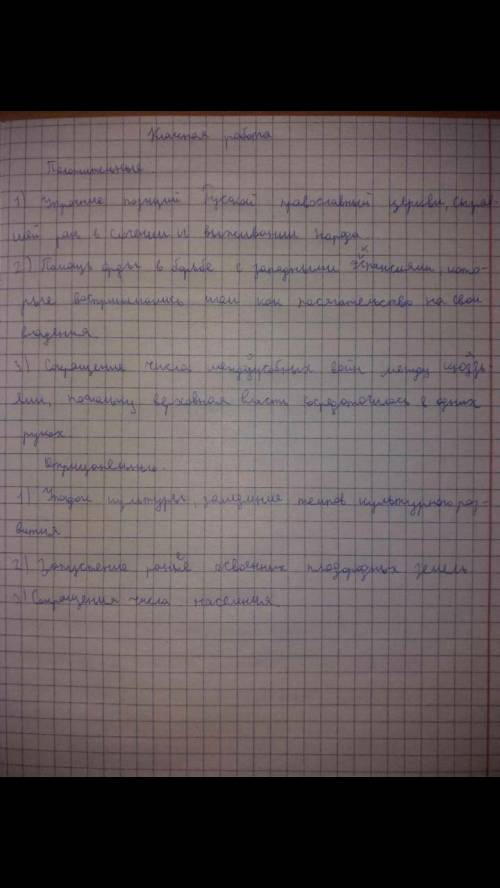 Класная работа
Положительные.
1) Упрочние позиций Руской православный церкви, сыграв-
шей рол в сплочении и выживании народа
2) Помощь орды в борьбе с западными экпансиями, кото-
рые воспринимались ими как посягательство на свои
владения.
3) Сокращение числа междусобных войн между
поскольку верховная власть сосредоточилась в одних
руках.
Отрицательные.
1) Упадок культуры, замедление темпов культурного раз-
вития
2) Запустение ранее освоенных плодородных земель
3) Сокращения числа населения.